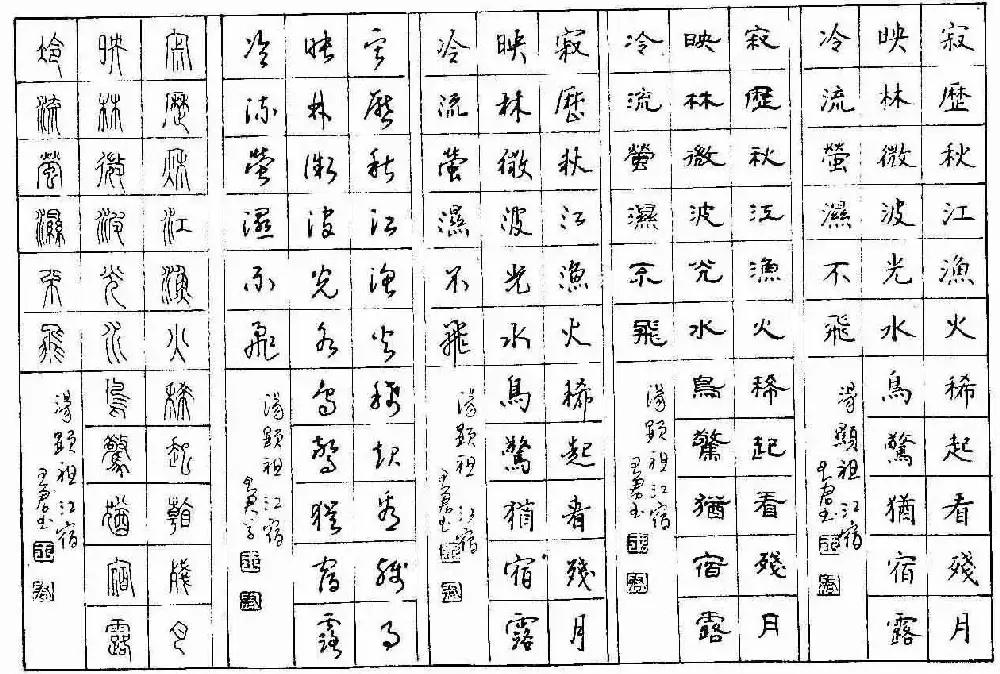 寂歷秋江漁火稀起看殘月
映林微波光水鳥驚猶宿露
冷流螢濕不飛
湯顯祖江宿
寂歷秋江漁火稀起看殘月
映林微波光水鳥驚猶宿露
冷流螢濕不飛
湯顯祖江宿
寂歷秋江漁火稀起看殘月
映林微波光水鳥驚猶宿露
冷流螢濕不飛
湯顯祖江宿
寂歷秋江漁火稀起看殘月
映林微波光水鳥驚猶宿露
冷流螢濕不飛
湯顯祖江宿
寂歷秋江漁火稀起看殘月
映林微波光水鳥驚猶宿露
冷流螢濕不飛
湯顯祖江宿